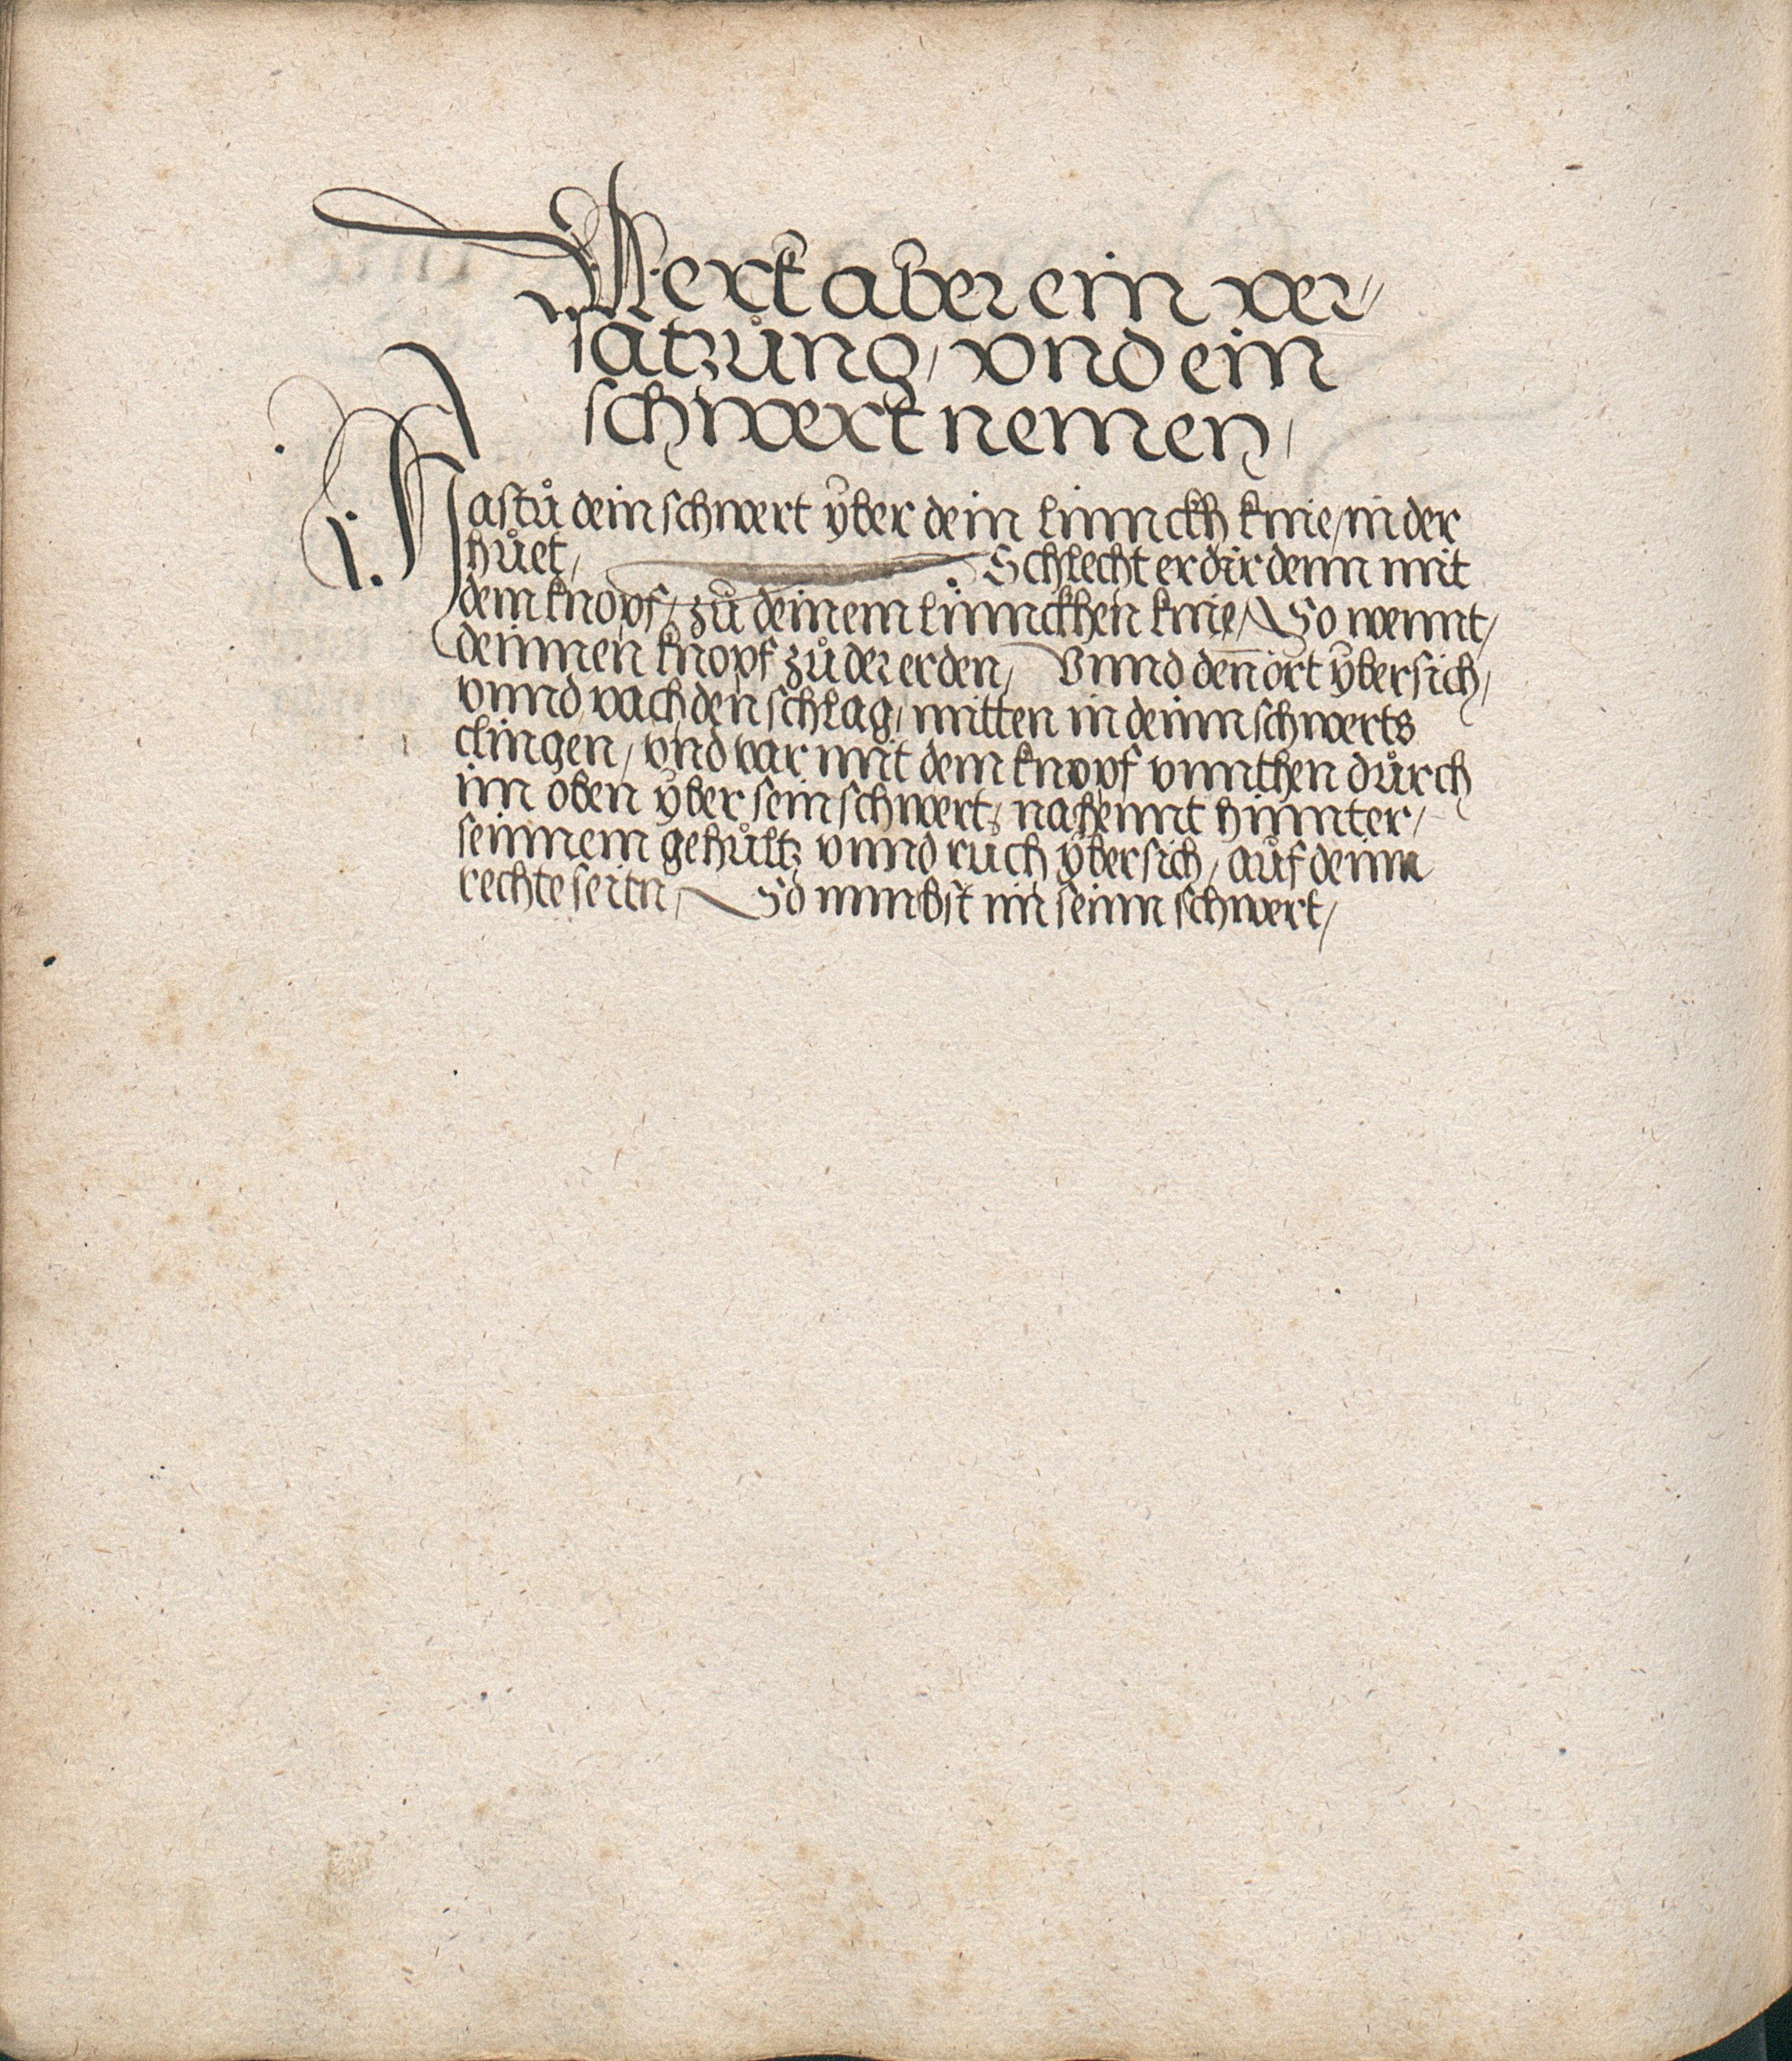 Merkt aber ein ver//
satzůng / vnd ein
schwert nemen /
Hastů dein schwert ÿber dein linnckh knie / in der
hůet / Schlecht er dir denn mit
dem knopf / zů deinem linnckhen knie / So wennt /
deinnen knopf zů der erden / Vnnd den ort ÿbersich /
vnnd vach den schlag / mitten in deinn schwerts
clingen / vnd var mit dem knopf vnnthen důrch
im oben ÿber sein schwert / nahennt hinnter /
seinnem gehůltz vnnd ruch ÿbersich / aůf deinn
rechte seitn / So nimbst im seinn schwert /